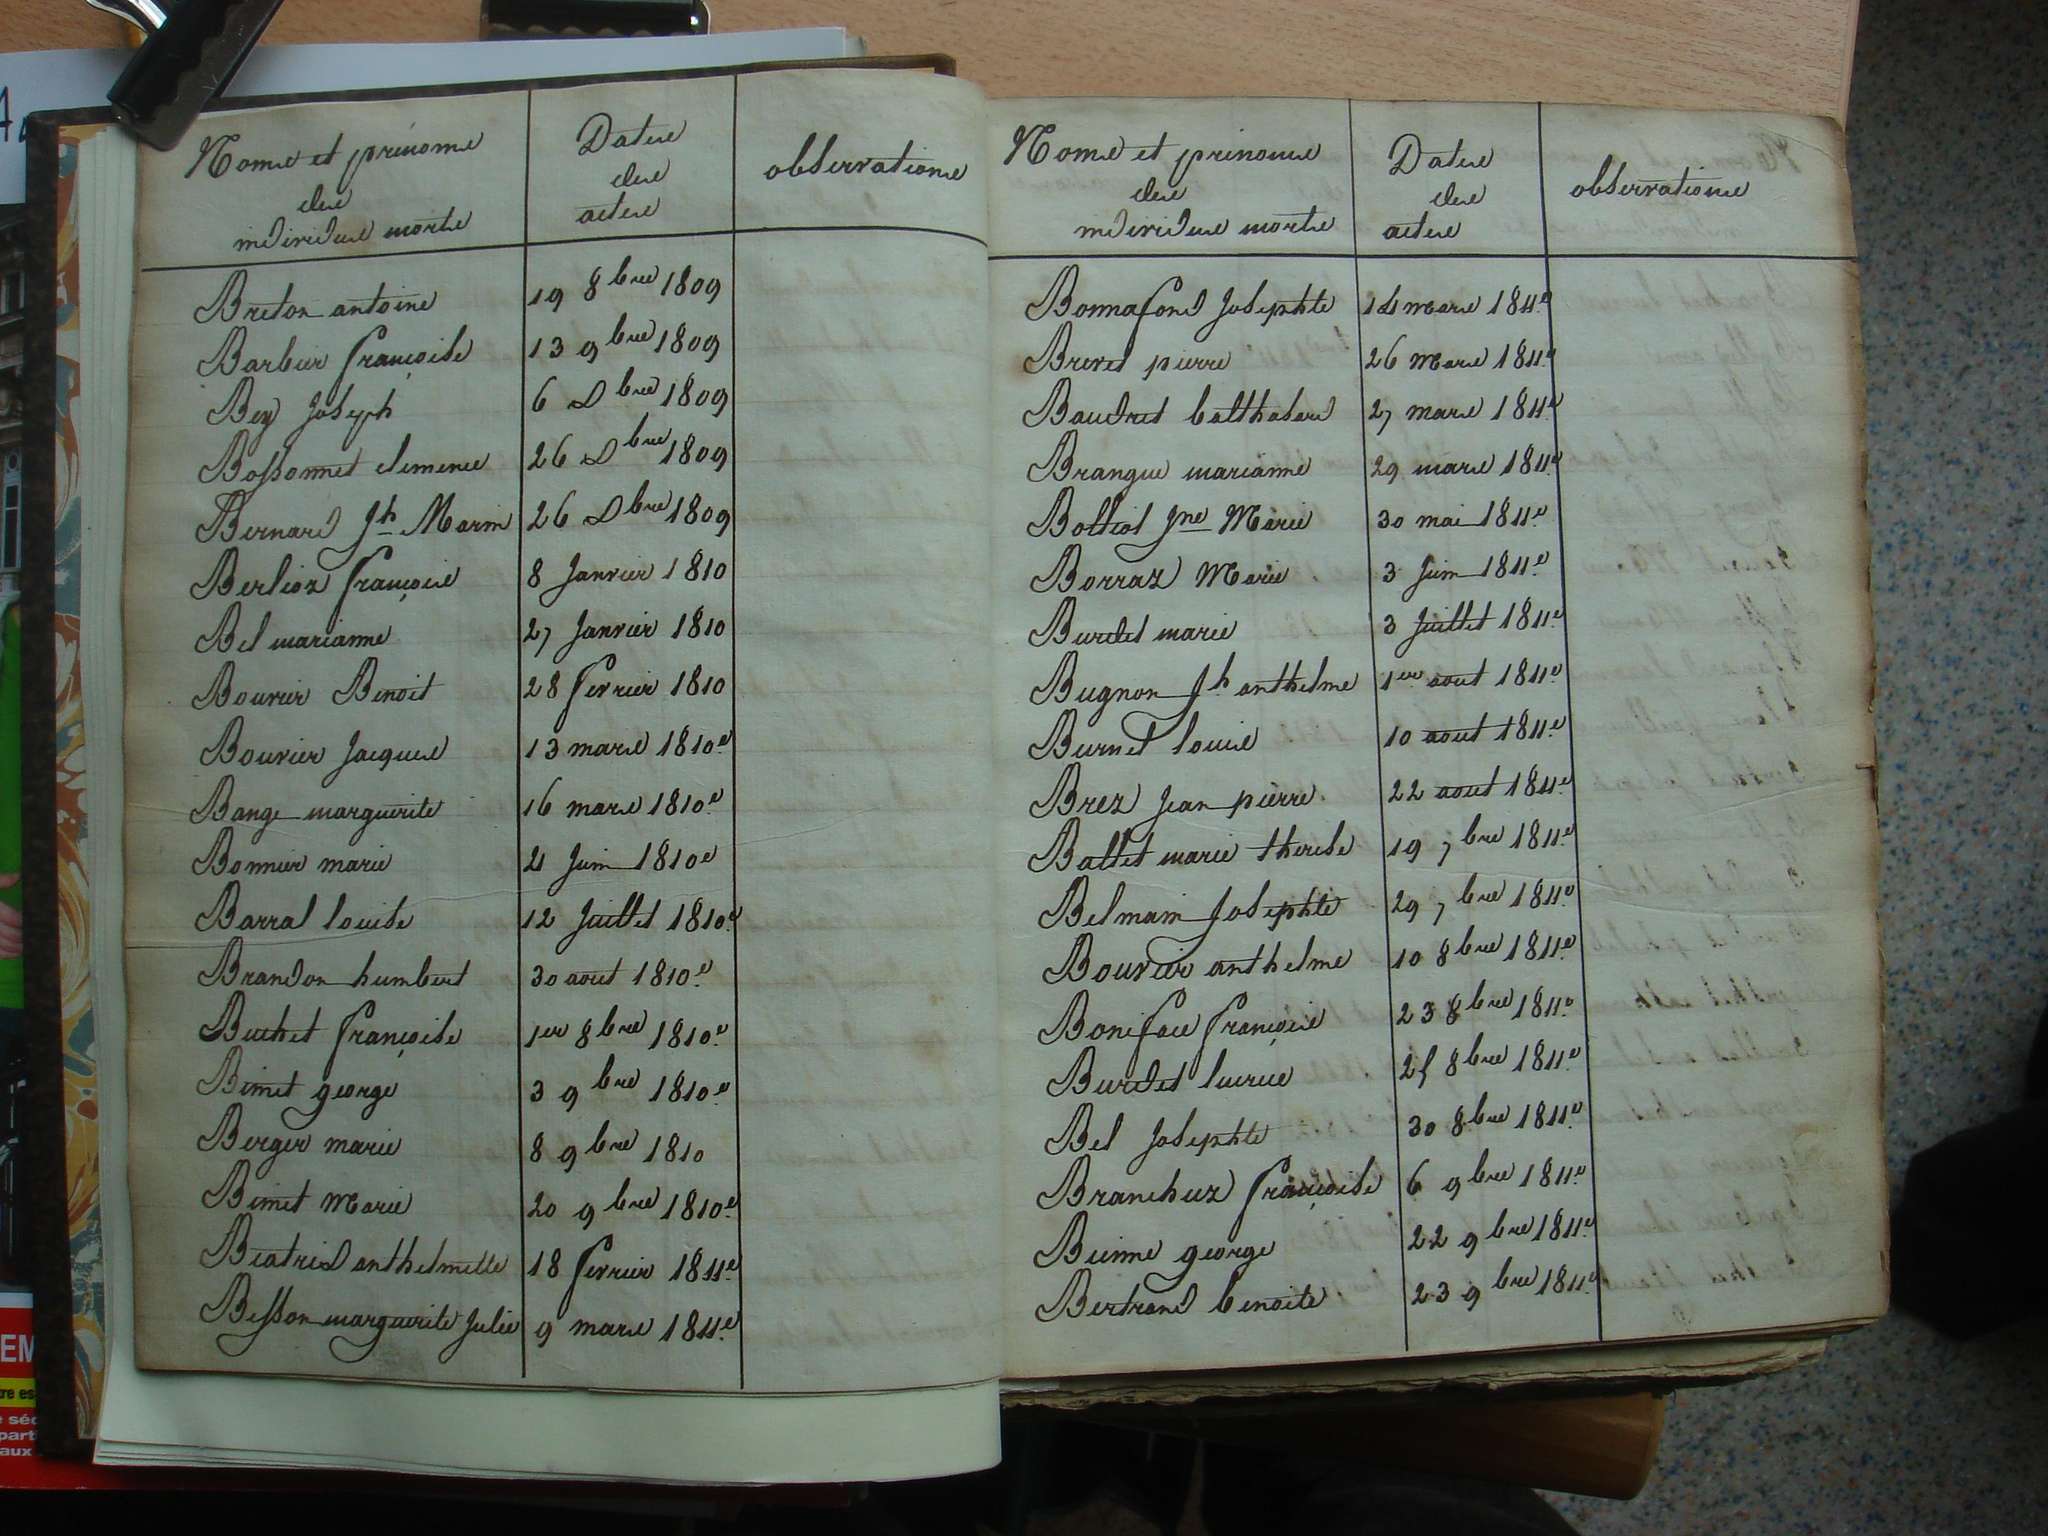 Noms et prénoms
des
individus morts
Dates
des
actes
observations
Breton antoine 19 8bre 1809
Barbier françoise 13 9bre 1809
Bey Joseph 6 Dbre 1809
Bossonnet clemence 26 Dbre 1809
Bernard Jh Marin 26 Dbre 1809
Berlioz françois 8 Janvier 1810
Bel marianne 27 Janvier 1810
Bouvier Benoit 28 fevrier 1810
Bouvier Jacques 13 mars 1810
Bange marguerite 16 mars 1810
Bonnier marie 21 Juin 1810
Barral louise 12 Juillet 1810
Brandon humbert 30 aout 1810
Buchet françoise 1er 8bre 1810
Bimet george 3 9bre 1810
Berger marie 8 9bre 1810
Bimet Marie 20 9bre 1810
Béatrix anthelmette 18 fevrier 1811
Besson marguerite Julie 9 mars 1811
Noms et prénoms
des
individus morts
Dates
des
actes
observations
Bonnafond Josephte 14 mars 1811
Brevet pierre 26 Mars 1811
Baudret balthasard 27 mars 1811
Brangue marianne 29 mars 1811
Bolliat Jne Marie 30 mai 1811
Borraz Marie 3 Juin 1811
Burdet marie 3 Juillet 1811
Bugnon Jh anthelme 1er aout 1811
Burnet louis 10 aout 1811
Brez Jean pierre 22 aout 1811
Ballet marie therese 19 7bre 1811
Belmain Josephte 29 7bre 1811
Bouvier anthelme 10 8bre 1811
Boniface françois 23 8bre 1811
Burdet lucrece 25 8bre 1811
Bel Josephte 30 8bre 1811
Branchuz françoise 6 9bre 1811
Bienne george 22 9bre 1811
Bertrand benoite 23 9bre 1811